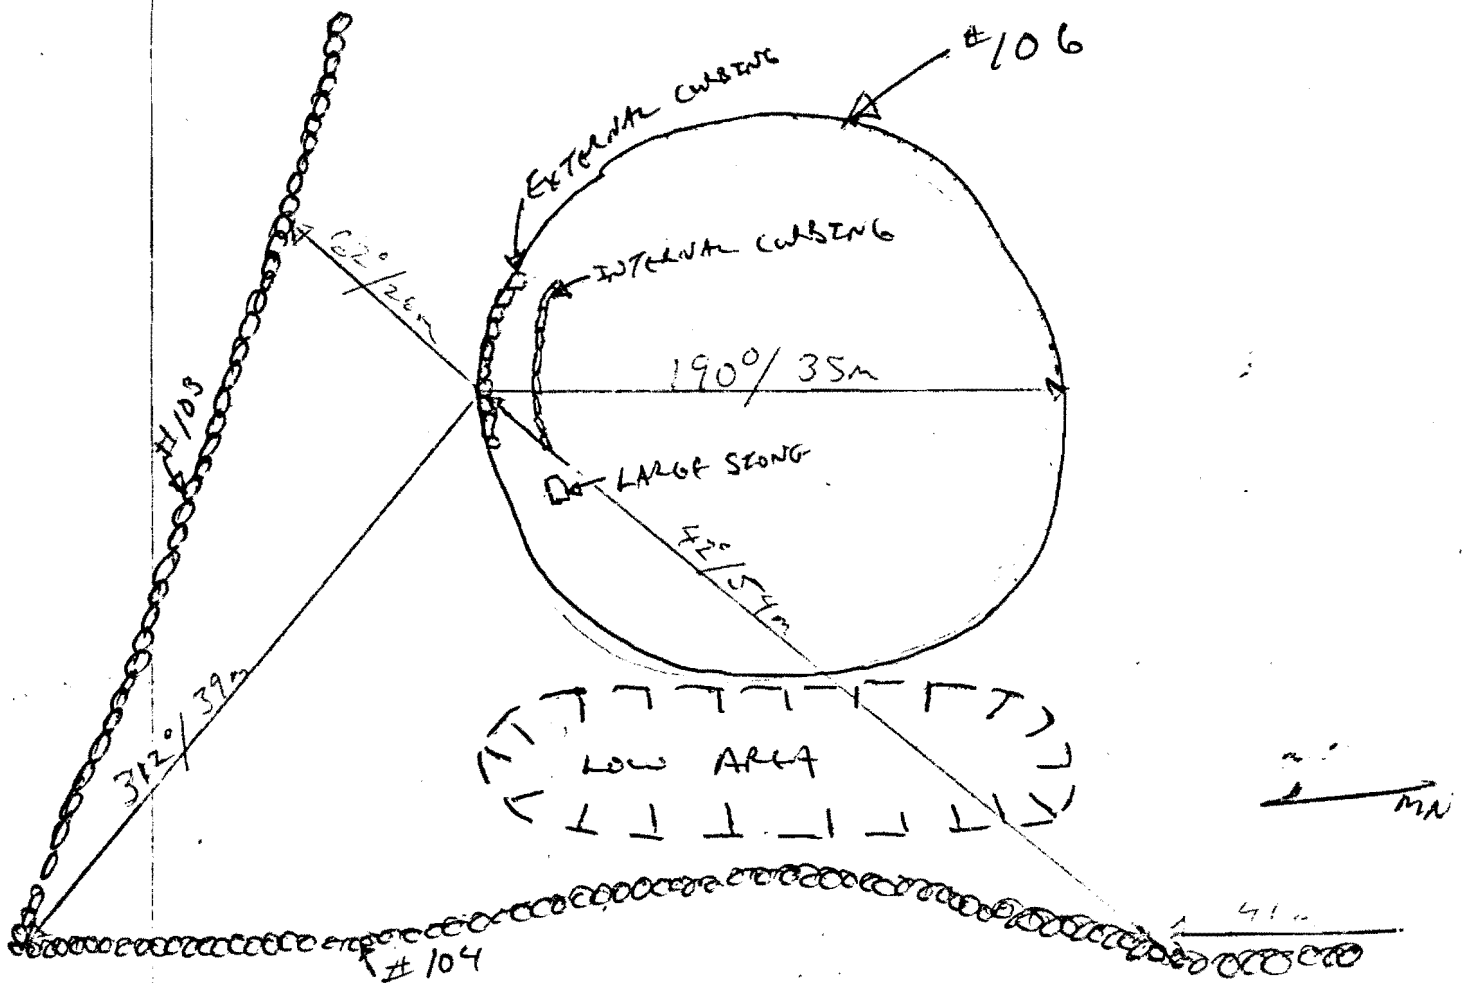 #106
EXTERNAL CURBING
INTERNAL CURBING
62°/26m
190°/35m
#103
LARGE STONE
42°/54m
312°/39m
LOW AREA
MN
41m
#104